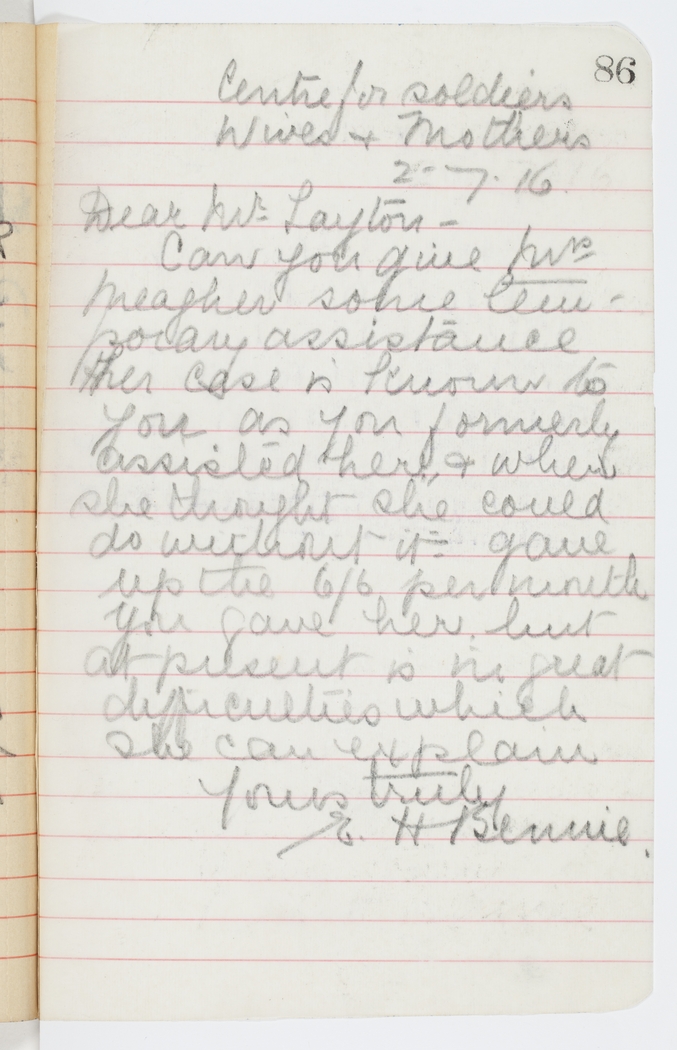 86
Centre for soldiers
Wives & Mothers
2-7-16.
Dear Mr. Layton -
Can you give Mrs
Meagher some tem-
porary assistance
Her case is known to
you as you formerly
assisted her, & when
she thought she could
do without it - gave
up the 6/6 per month
you gave her, but
at present is in great
difficulties which
she can explain
Yours truly
E. H Bennie.